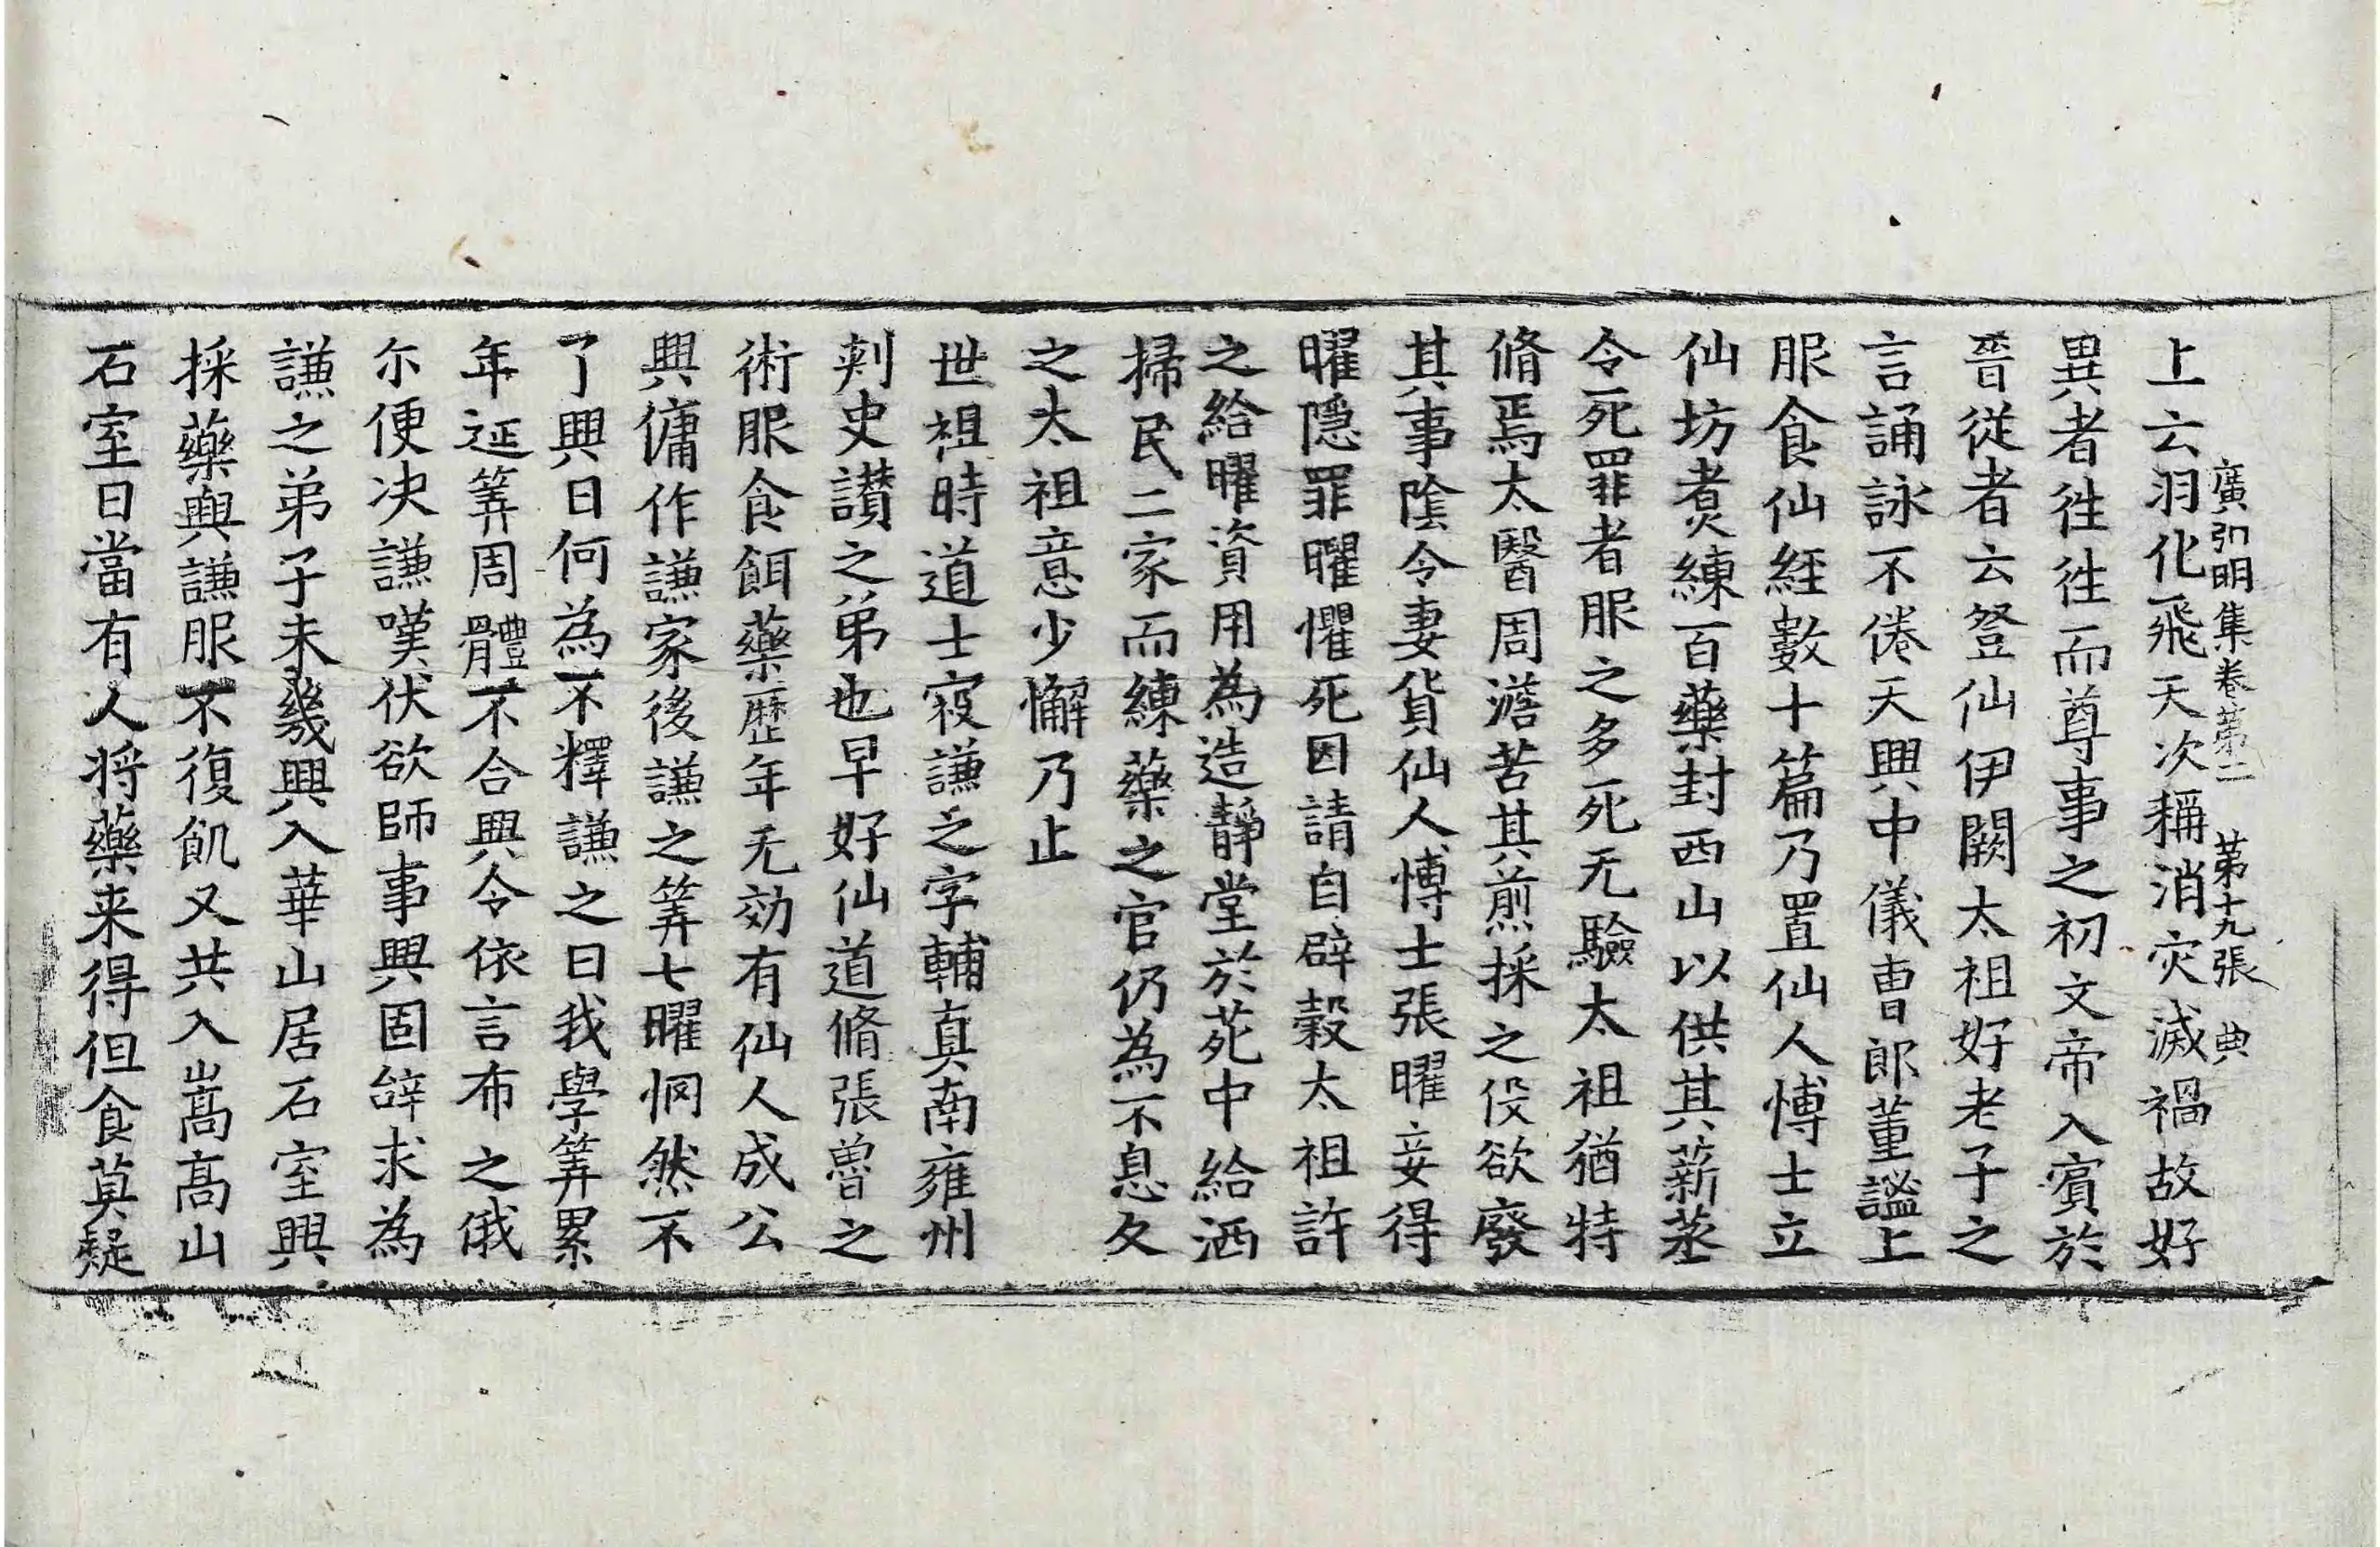 廣弘明集卷第二 第十九張 典
上云羽化飛天次稱消灾滅禍故好
異者徃徃而尊事之初文帝入賓於
晉從者云登仙伊闕太祖好老子之
言誦詠不倦天興中儀曹郎董謐上
服食仙經數十篇乃置仙人博士立
仙坊煑練百藥封西山以供其薪蒸
令死罪者服之多死无驗太祖猶特
脩焉太醫周澹苦其煎採之役欲廢
其事陰令妻貨仙人博士張曜妾得
曜隱罪曜懼死因請自辟穀太祖許
之給曜資用為造靜堂於苑中給洒
掃民二家而練藥之官仍為不息久
之太祖意少懈乃止
世祖時道士寇謙之字輔真南雍州
刾史讃之弟也早好仙道脩張魯之
術服食餌藥歷年无効有仙人成公
興傭作謙家後謙之筭七曜惘然不
了興曰何為不釋謙之曰我學筭累
年近筭周體不合興令依言布之俄
尓便决謙嘆伏欲師事興固辝求為
謙之弟子未幾興入華山居石室興
採藥與謙服不復飢又共入嵩高山
石室曰當有人将藥来得但食莫疑